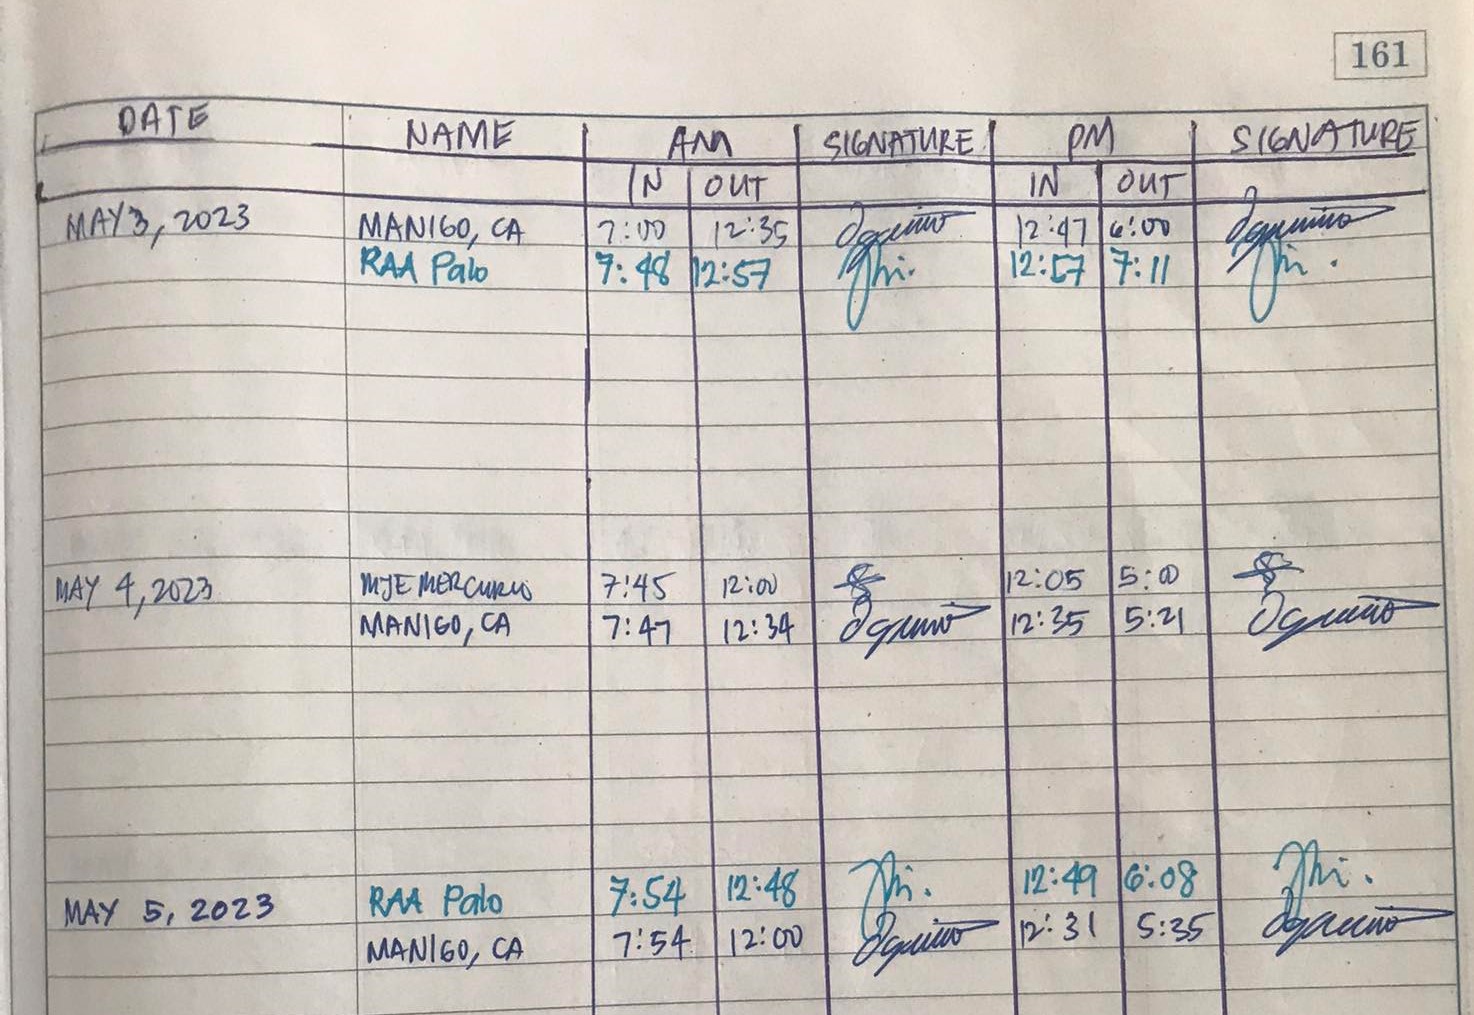 161
DATE NAME AM SIGNATURE PM SIGNATURE
IN OUT IN OUT
MAY 3, 2023 MANIGO, CA 7:00 12:35 12:47 6:00
RAA Palo 7:48 12:57 12:57 7:11
MAY 4, 2023 MJE MERCURIO 7:45 12:00 12:05 5:00
MANIGO, CA 7:47 12:34 12:35 5:21
RAA Palo 7:54 12:48 12:49 6:08
MAY 5, 2023
MANIGO, CA 7:54 12:00 12:31 5:35